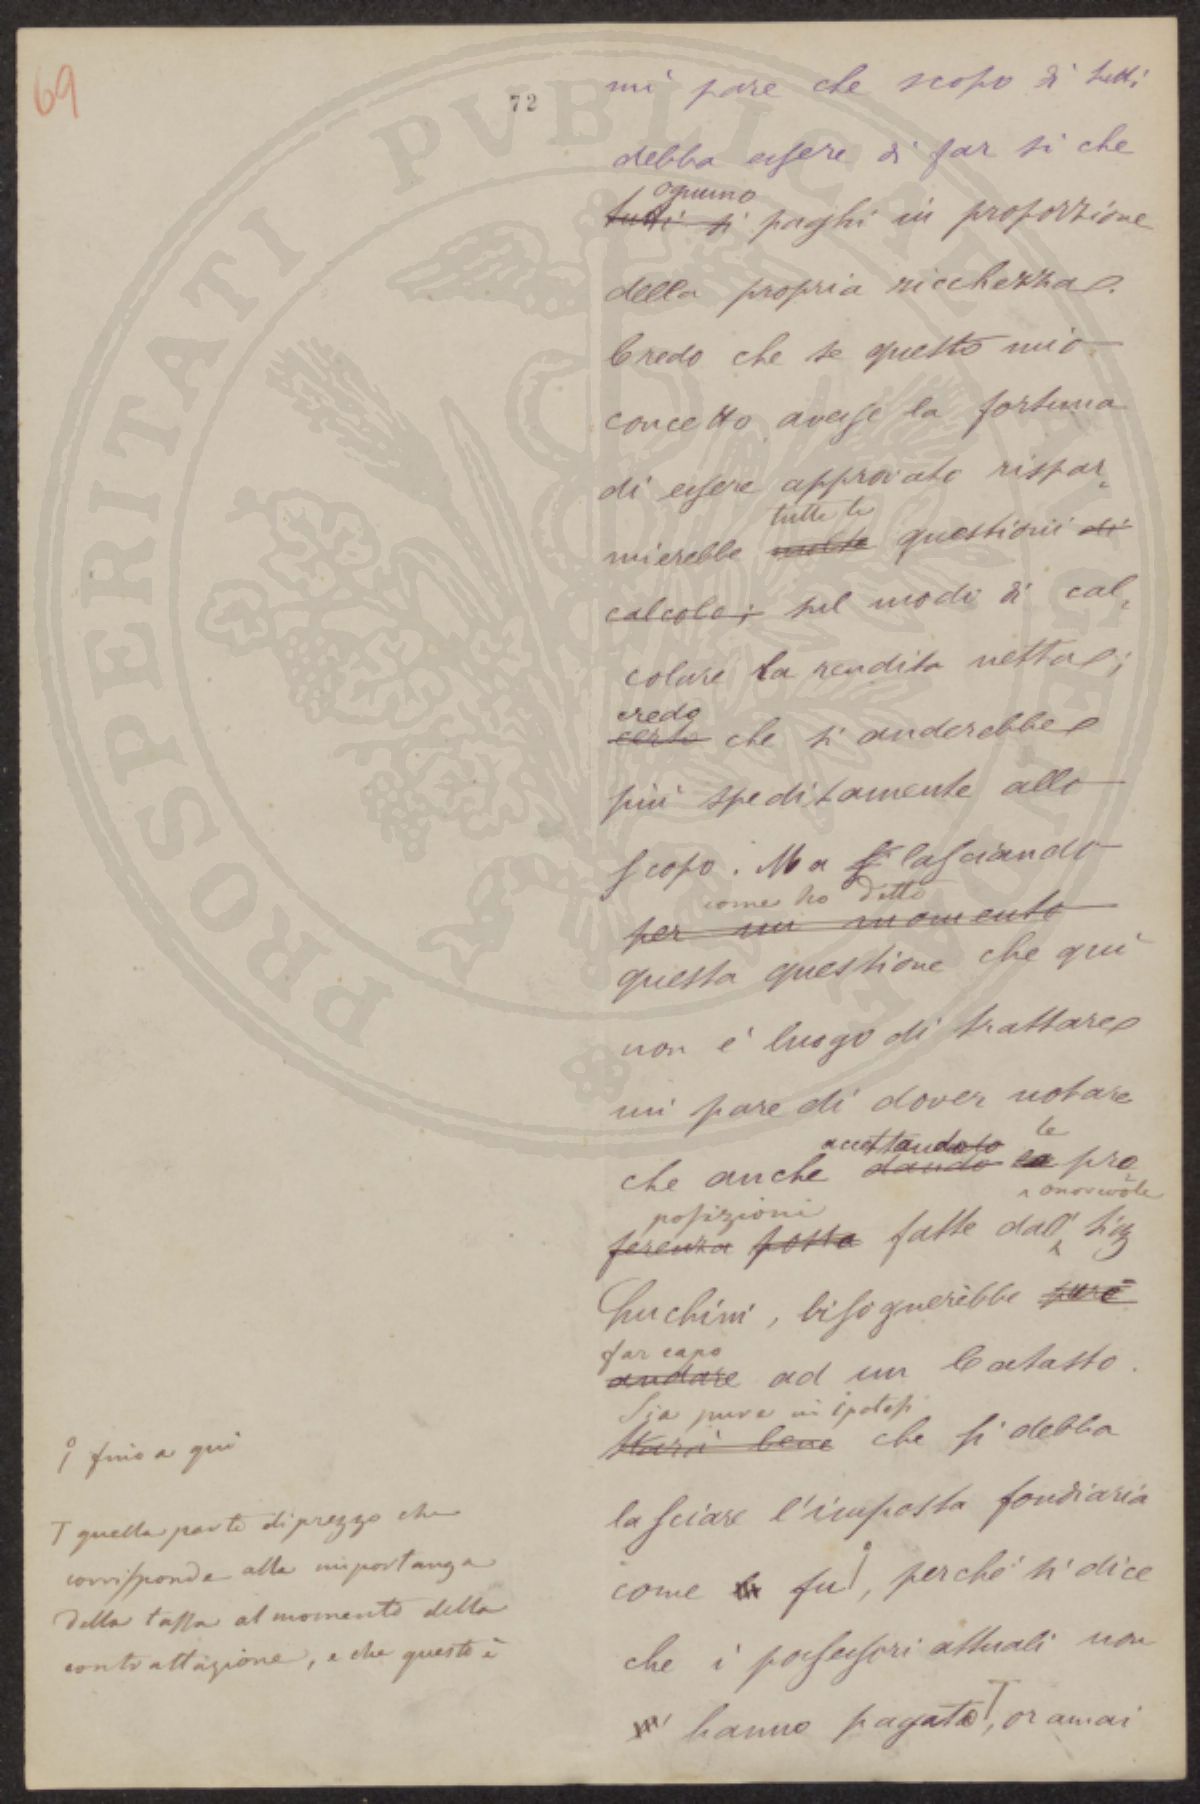 69
72
mi pare che scopo di tutti
debba essere di far si che
ognuno
tutti si paghi in proporzione
della propria ricchezza.
Credo che se questo mio
concetto avesse la fortuna
di essere approvato rispar-
tutte le
mierebbe molte questioni di
calcolo; sul modo di cal-
colare la rendita netta;
credo
certo che si anderebbe
più speditamente allo
scopo. Ma lasciando
come ho detto
per un momento
questa questione che qui
non è luogo di trattare
mi pare di dover notare
accettando le
che anche dando la pro
posizioni onorevole
ferenza posta fatte dall' Sig
Luchini, bisognerebbe pure
far capo
andare ad un Catasto.
Sia pure in ipotesi
Starà bene che si debba
lasciare l'imposta fondiaria
come fu, perché si dice
che i possessori attuali non
hanno pagato T, oramai
fino a qui
T quella parte di prezzo che
corrisponde alla importanza
della tassa al momento della
contrattazione, e che questo è
PROSPERITATI PVBLICAE AVGENDAE